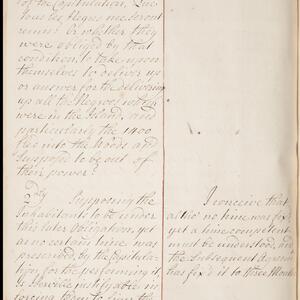 of the Capitulation,
were obliged by that
condition to take upon
themselves to deliver up
or answer for the delivering
up all the Negroes which
were in the Island, and
particularly the 1400
fled into the Woods and
Suppos'd to be out of
their power?
2dly Supposing the
Inhabitants to be under
this latter Obligation, yet
as no certain time was
prescribed by the Capitula-
tion for the performing it,
justifyable in
I conceive that
altho' no time was fix'd
yet a time competent
must be understood, and
the Subsequent Agreem.t
has fix'd it to three Months